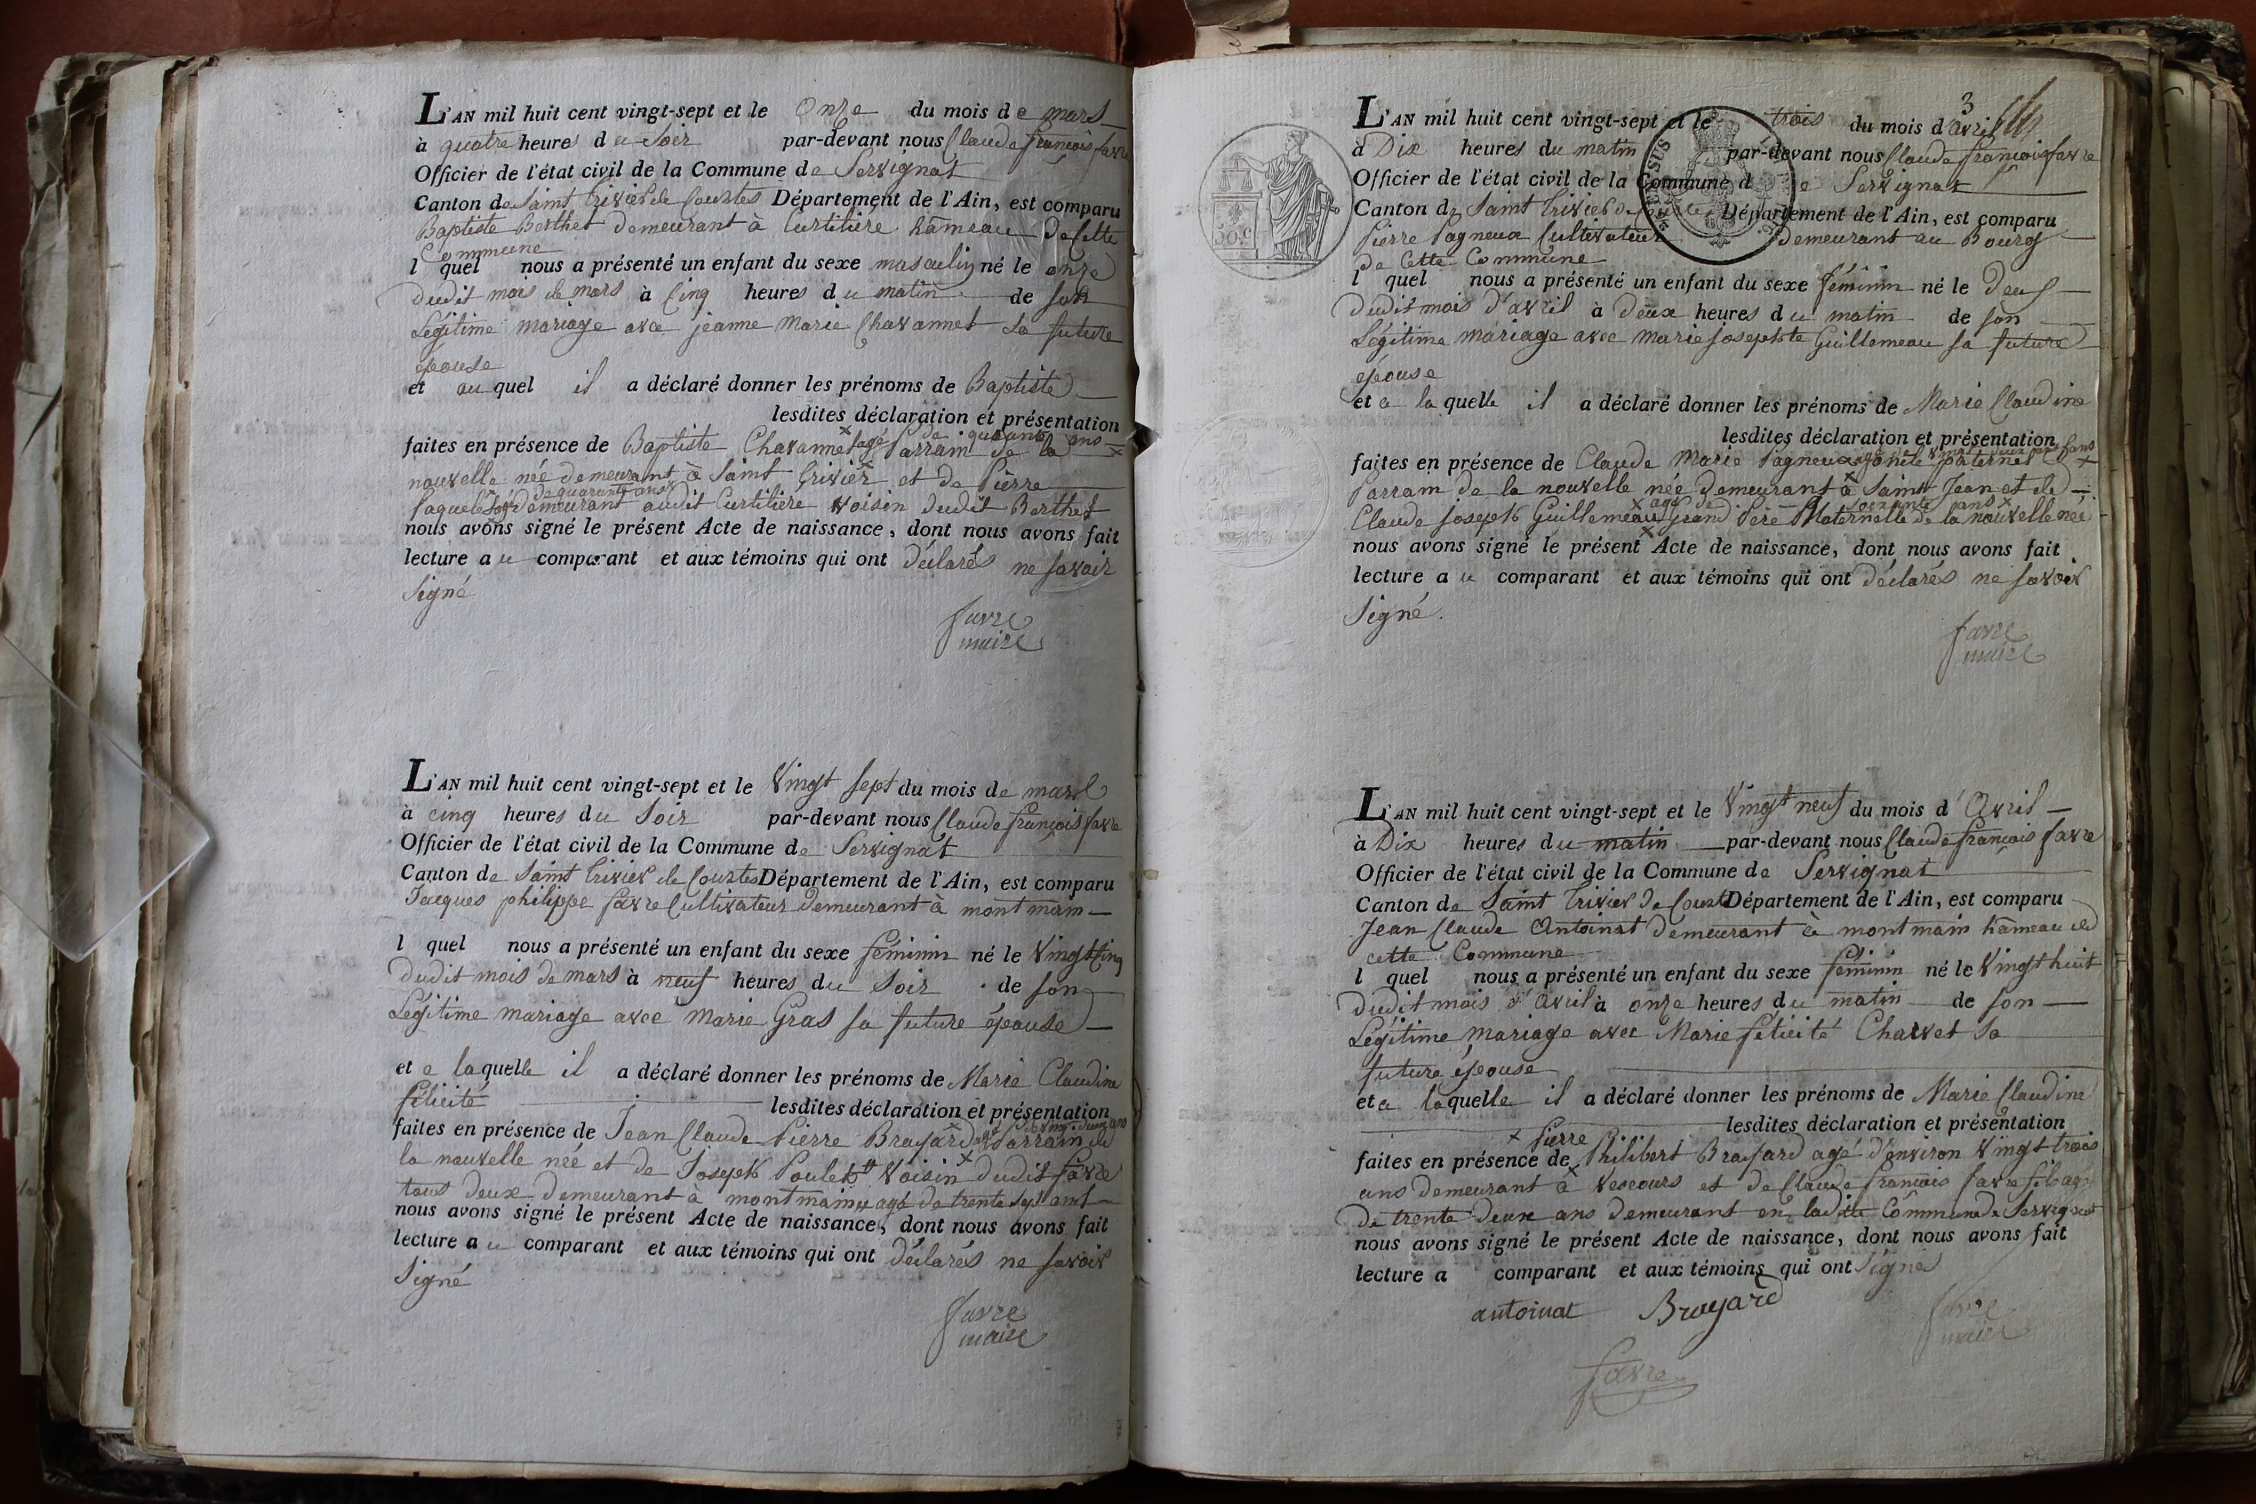 L'AN mil huit cent vingt-sept et le Onze du mois de mars
à quatre heures du Soir par-devant nous Claude françois favre
Officier de l'état civil de la Commune de Servignat
Canton de Saint Trivier de Courtes Département de l'Ain, est comparu
Baptiste Berthet demeurant à Curtilière hameau De Cette
Commune
l quel nous a présenté un enfant du sexe masculin né le onze
dudit mois de mars à Cinq heures du matin de son
Légitime mariage avec jeanne Marie Chavannet sa future
épouse
et au quel il a déclaré donner les prénoms de Baptiste
lesdites déclaration et présentation
de quarante ans
faites en présence de Baptiste Chavannet agé Parrain de la
nouvelle née demeurant à Saint Trivier et de Pierre
de quarante ans
demeurant audit Curtilière voisin dudit Berthet
nous avons signé le présent Acte de naissance, dont nous avons fait
lecture au comparant et aux témoins qui ont déclarés ne savoir
Signé
favre
maire
L'AN mil huit cent vingt-sept et le Vingt sept du mois de mars
à cinq heures du Soir par-devant nous Claude françois favre
Officier de l'état civil de la Commune de Servignat
Canton de Saint Trivier de Courtes Département de l'Ain, est comparu
Jacques philippe favre Cultivateur demeurant à montmain
l quel nous a présenté un enfant du sexe féminin né le Vingt Cinq
dudit mois de mars à neuf heures du Soir de son
Légitime mariage avec Marie Gras sa future épouse
et a laquelle il a déclaré donner les prénoms de Marie Claudine
félicité lesdites déclaration et présentation
faites en présence de Jean Claude Pierre Brayard agé Parrain de
la nouvelle née et de Joseph Poulet Voisin dudit favre
tous deux demeurant à montmain agé de trente sept ans
nous avons signé le présent Acte de naissance, dont nous avons fait
lecture au comparant et aux témoins qui ont déclarés ne savoir
Signé
favre
maire
3
L'AN mil huit cent vingt-sept et le trois du mois d'avril
à Dix heures du matin par-devant nous Claude françois favre
Officier de l'état civil de la Commune de Servignat
Canton de Saint Trivier de Courtes Département de l'Ain, est comparu
Pierre Pagneux Cultivateur demeurant au Bourg
De Cette Commune
l quel nous a présenté un enfant du sexe féminin né le Deux
dudit mois d'avril à deux heures du matin de son
Légitime mariage avec Marie Josephte Guillemeau sa future
épouse
et a la quelle il a déclaré donner les prénoms de Marie Claudine
lesdites déclaration et présentation
faites en présence de Claude Marie Pagneux oncle paternel
Parrain de la nouvelle née demeurant à Saint Jean et de
agé de soixante ans
Claude Joseph Guillemeau grand Père Maternelle de la nouvelle née
nous avons signé le présent Acte de naissance, dont nous avons fait
lecture au comparant et aux témoins qui ont déclarés ne savoir
Signé.
favre
maire
50 c
L'AN mil huit cent vingt-sept et le Vingt neuf du mois d'Avril
à Dix heures du matin par-devant nous Claude françois favre
Officier de l'état civil de la Commune de Servignat
Canton de Saint Trivier de Courtes Département de l'Ain, est comparu
Jean Claude Antoinat demeurant à montmain hameau de
cette Commune
l quel nous a présenté un enfant du sexe féminin né le Vingt huit
dudit mois d'Avril à onze heures du matin de son
Légitime mariage avec Marie félicité Charvet sa
future épouse
et a laquelle il a déclaré donner les prénoms de Marie Claudine
lesdites déclaration et présentation
Pierre
faites en présence de Philibert Brayard agé d'environ Vingt trois
ans demeurant à Vescours et de Claude françois favre fils agé
De trente deux ans demeurant en ladite Commune de Servignat
nous avons signé le présent Acte de naissance, dont nous avons fait
lecture a comparant et aux témoins qui ont Signés
antoinat Brayard favre
maire
favre